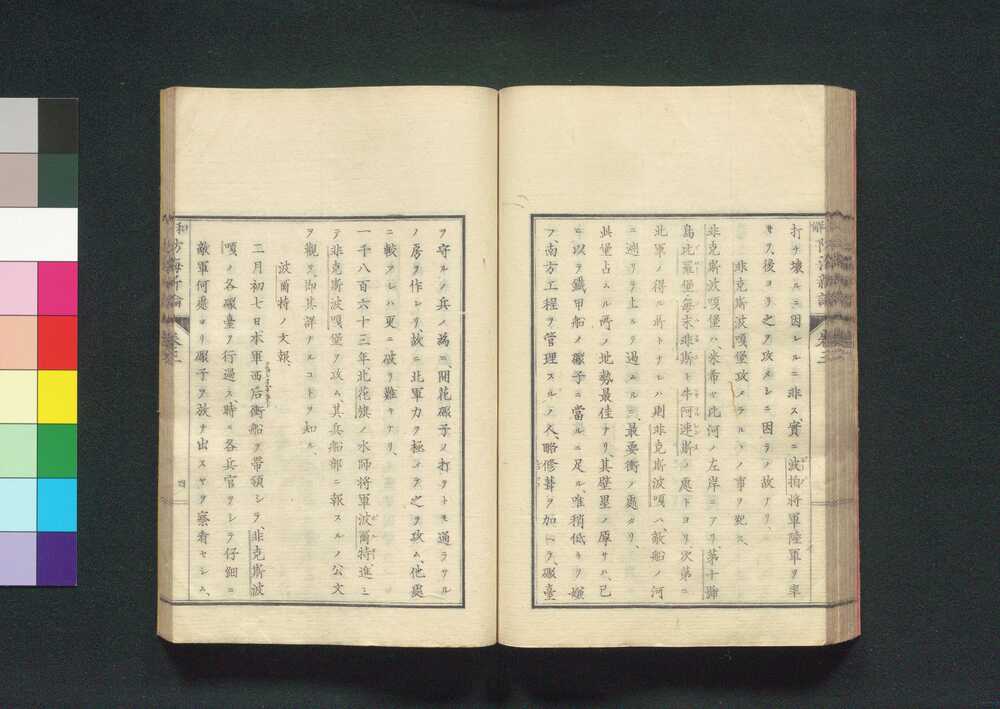 打チ壊ルニ因レルニ非ス、實ニ波拍将軍陸軍ヲ率
井ス、後ヨリ之ヲ攻メシニ因ラノ故ナリ、
非克斯波嘎堡攻メラルヽノ事ヲ記ス、
非克斯波嘎堡ハ、米希セ比河ノ左岸ニアリ、第十號
島比羅堡毎未非斯ト牛阿連斯ノ處トヨリ、次第ニ
北軍ノ得ル所トナレハ則非克斯波嘎ハ、敵船ノ河
ニ遡リテ上ルヲ遏ムルニ、最要衝ノ處ナリ、
此堡占ムル所ノ地勢最佳ナリ、其壁星ノ厚サハ、已
ニ以テ鐵甲船ノ礟子ニ當ルニ足ル、唯稍低キヲ嫌
フ、南方工程ヲ管理スルノ人、略修葺ヲ加ヘテ、礟臺
ヲ守ルノ兵ノ為ニ、開花礟子ノ打ウトモ通ラサル
ノ房ヲ作レリ、故ニ北軍力ヲ極メテ之ヲ攻ム、他處
ニ較フレハ更ニ破リ難キナリ、
一千八百六十三年、北花旗ノ水師将軍波爾特進ミ
テ非克斯波嘎堡ヲ攻ム、其兵船部ニ報スルノ公文
ヲ觀テ、即其詳ナルコトヲ知ル、
波爾特ノ文報、
二月初七日、本軍西后衝船ヲ帯領シテ、非克斯波
嘎ノ各礟臺ヲ行過ス、時ニ各兵官ヲシテ仔細ニ
敵軍何處ヨリ礟子ヲ放チ出スヤヲ察看セシム、
防海新論
卷三
四